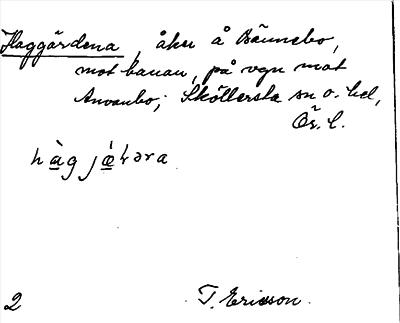 Haggärdena, åker å Bännebo,
mot banan, på vgn mot
Anvanbo; Sköllersta sn o. hd,
Ör. l.
hàg jǽɽəra
2 T. Ericsson.